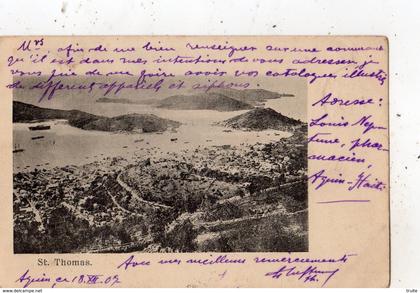 Mrs, afin de me bien renseigner sur une commande
qu'il est dans mes intentions de vous adresser, je
vous prie de me faire avoir vos catalogues illustrés
de différent appareils et siphons
Adresse:
Louis Neptune,
pharmacien,
Aquin-Haiti
St. Thomas.
Avec mes meilleurs remerciements
Aquin, ce 18. XII. 07